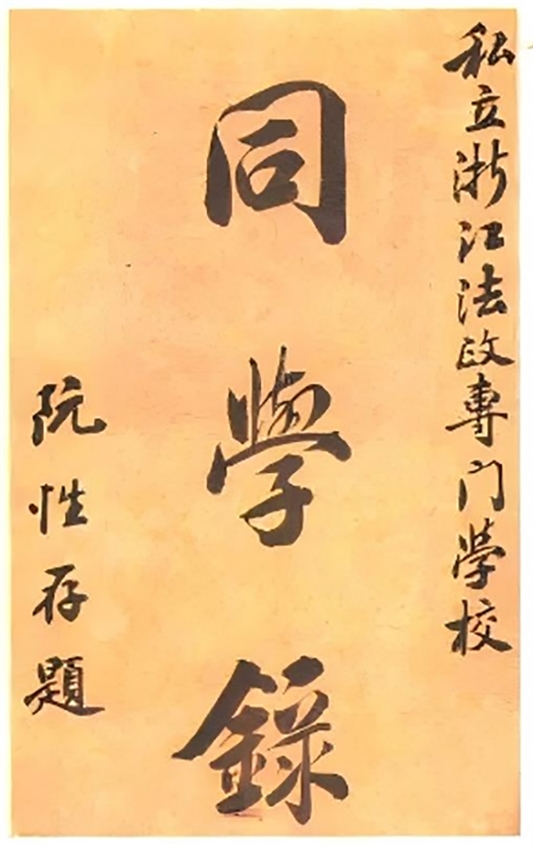 私立浙江法政專门學校
同學錄
阮性存題